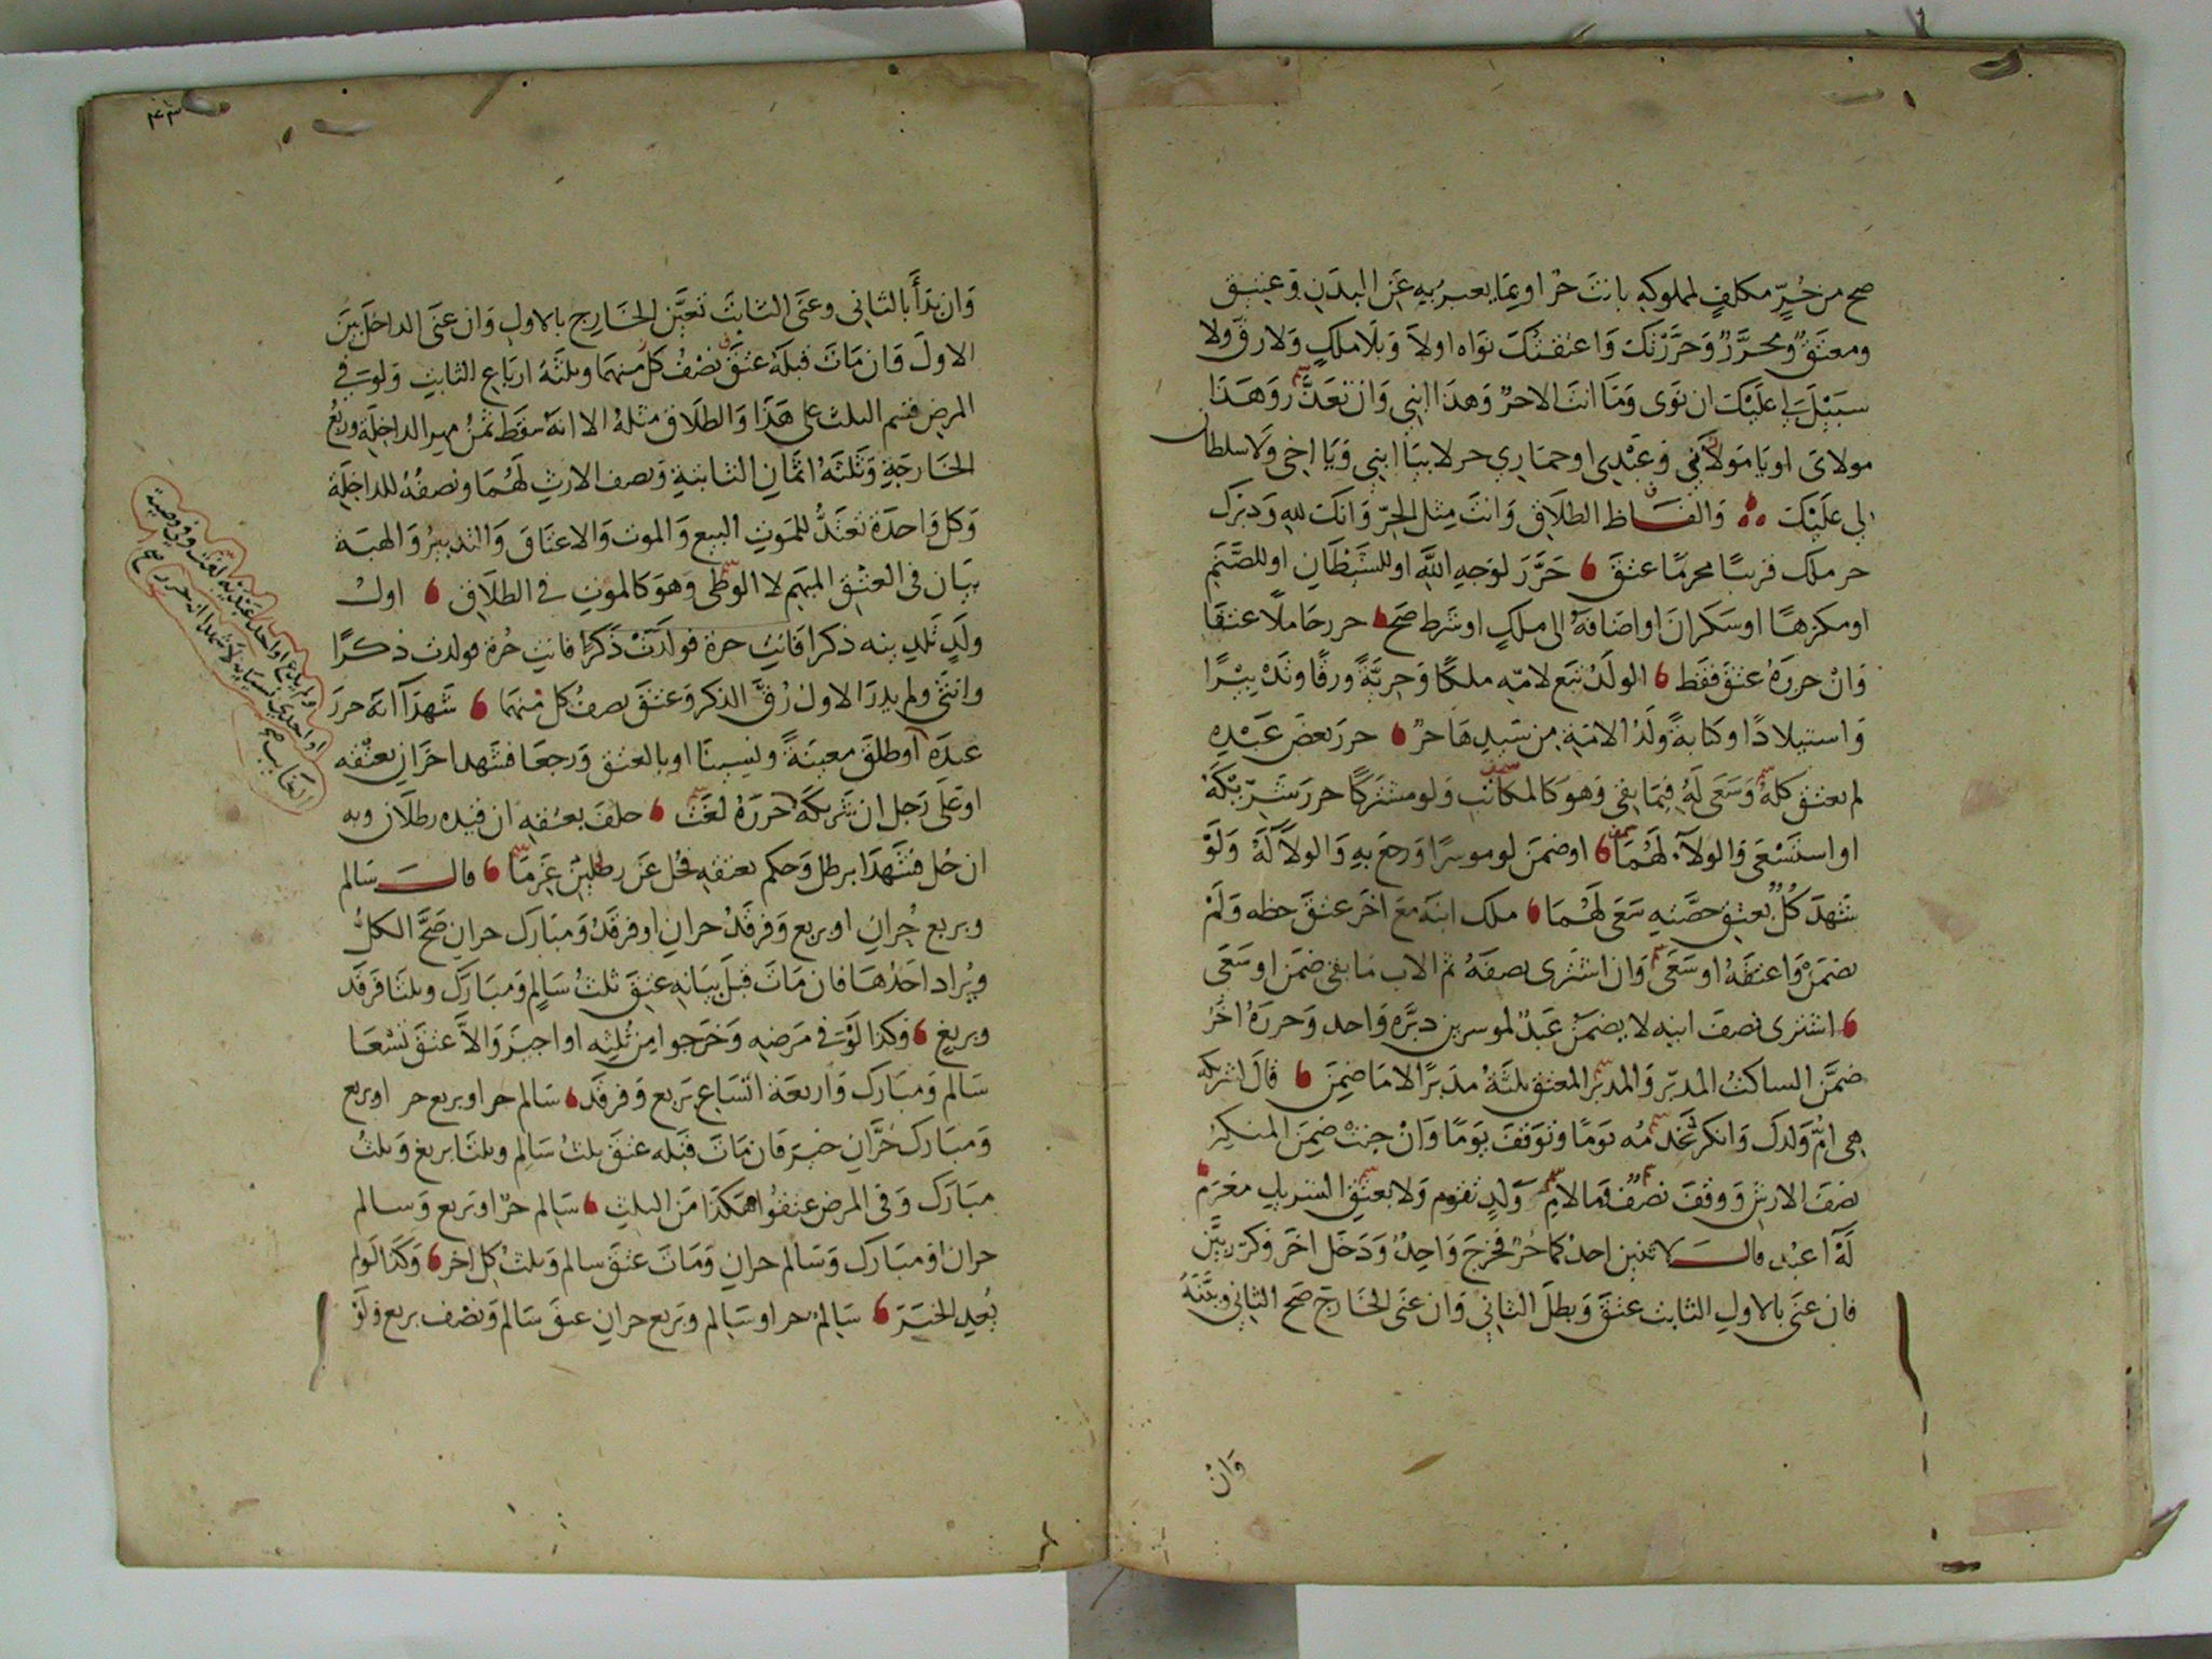 صح من حُرٍّ مكلفٍ لمملوكهِ بانت حرٌ او بمَا يعبر بهِ عَن البدَنِ وَعَتِيق
ومعتَقٌ ومحرَّرٌ وَحَرَّرْتكَ وَاعتقتكَ نوَاه اولاَ وَبلَا ملكٍ وَلا رقٍّ ولا
سبيْلَ لي عليْكَ ان نوَى وَمَا انتَ الا حرٌ وَهذَا ابني وَان تعَذَّرَ وَهَذَا
مولاىَ او يَا مَولاَىَ وَعَبْدي او حمَاري حر لا بيَا ابني وَيَا اخي وَلا سلطان
لي عليْكَ وَالفَاظ الطلَاقِ وَانتَ مِثل الحرّ وَانكَ للهِ وَدبرك
حر ملك قريبًا محرمًا عتقَ حَرَّرَ لوَجهِ اللَّهِ او للشيْطَانِ او للصَّنَمِ
او مكرَهًا او سَكرَانَ او اضَافهُ الى ملكٍ او شَرط صَحَّ حرر حَاملًا عتقَا
وَانْ حررَهُ عتقَ فقَط الولدُ تبَع لامّهِ ملكًا وَحريَّةً ورقًا وتدْبيْرًا
وَاستيلادًا وكتابةً وَلدُ الامَةِ مِن سَيدِهَا حرٌ حررَ بعضَ عَبْدِه
لم يعتق كلهُ وَسَعَى لَهُ فِيمَا بقي وَهوَ كَالمكَاتب وَلو مشترَكًا حررَ شَرِيْكُهُ
او استَسْعَى وَالولآءُ لهُمَا او ضمنَ لو موسرًا وَرجعَ بهِ وَالولآءُ لَهُ وَلَوْ
شَهِدَ كُلٌ بعتقِ حصَّتهِ سَعَى لهُمَا ملك ابنَهُ معَ اخَر عتقَ حظه وَلَمْ
يضمَنْ وَاعتقَهُ او سَعَى وَان اشترى نصفَهُ ثم الاب مَا بقى ضمَن او سَعَى
اشترى نصفَ ابنهِ لا يضمَنْ عَبدٌ لموسرين دبَّرَهُ وَاحد وَحررَهُ اخرُ
ضمَّنَ الساكتُ المدبّر وَالمدبّر المعتقَ ثلثَهُ مدَبرًا لا مَا ضمِنَ قالَ لشريكهِ
هى امُّ وَلدكَ وَانكرَ تخدمُه يَومًا وتوَقفَ يوَمًا وَانْ جنتْ ضمِنَ المنكِرُ
نصفَ الارشِ وَوقفَ نصْفٌ فمَا لامِّ وَلدٍ تقوم وَلا يعتِقِ الشريك مغرَم
لَهُ اعبُد قالَ لاثنين احدُكمَا حُرٌ فخرَجَ وَاحِدٌ وَدخَل اخَر وَكرّرَ بيَّنَ
فان عنَى بالاولِ الثابت عتقَ وَبطلَ الثاني وَان عنَى الخَارجَ صَح الثاني وبيَّنَهُ
وَانْ
٤٣
وَان بدَأَ بالثاني وعنَى الثابتَ تعيَّن الخَارج بالاول وَان عنَى الداخلَ بيَّنَ
الاولَ وَان مَاتَ قبلَهُ عتقَ نصْفُ كلٍّ منهمَا وثلثَةُ اربَاعِ الثابتِ وَلو في
المرض قسم الثلث على هَذَا وَالطلَاق مثلهُ الا انهُ سقَط ثمُنُ مهرِ الداخِلةِ وربُعُ
الخَارجَةِ وَثلثَةُ اثمَانِ الثابتةِ وَنصف الارثِ لهُمَا ونصفُهُ للداخِلةِ
وَكل وَاحدَة تعتَدُّ للمَوتِ البيع وَالموت وَالاعتَاق وَالتدبيرُ وَالهبَة
بيَان فى العِتْقِ المبهَمِ لا الوَطى وَهوَ كَالموتِ في الطلَاقِ اولُ
ولَدٍ تلدِينه ذكرا فَانتِ حرة فوَلدَتْ ذكرًا فانتِ حُرة فولدت ذكرًا
وانثى ولم يدرَ الاول رُقَّ الذكر وَعتقَ نصفُ كل منهمَا شَهدَآ انَه حررَ
عبدَه او طلقَ معينَةً ونسينَا او بالعتق وَرجعَا فشهد اخرَانِ بعتقه
او عَلى رَجل ان شَريكَهُ حررَهُ لغَتْ حلفَ بعتقهِ ان قيده رطلَان وبه
ان حُل فشَهدَا برطل وَحكم بعتقهِ فحُل عَن رطلين غرِمَا قالَ سَالم
وبربع حُرانِ او بربع وَفرقَدُ حرانِ او فرقدُ وَمبَارَك حرانِ صَحَّ الكلُّ
ويُراد احَدُهَا فان مَاتَ قبلَ بيَانهِ عتِقَ ثلثُ سَالمٍ وَمبَارَك وثلثَا فَرقَد
وبربع وَكذا لَوْ في مَرضهِ وَخرَجوا مِن ثُلثه او اجيزَ وَالاَّ عتقَ تُسْعَا
سَالم وَمبَارَك وَاربعَة اتْسَاع بَربع وَفرقَد سَالم حر او بربع حر او بربع
وَمبَارك حُرَّان خيّر فَان مَاتَ قبله عتقَ ثلثُ سَالِم وثلثَا بربع وَثلثُ
مبَارَك وَفى المرض عتقُوا هكَذَا من الثلثِ سَالِم حرٌ او بَربع وَسالم
حران او مبَارَك وَسَالم حرانِ وَمَاتَ عتقَ سالم وَثلثُ كل اخر وَكذا لَو لم
يُعِدِ الخبَرَ سَالِمٌ حر او سَالِم وبَربع حرانِ عتقَ سَالم وَنصْف بربع وَلَوْ